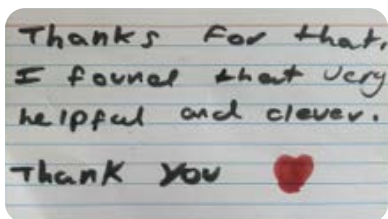 Thanks For that,
I found that very
helpful and clever.
Thank you